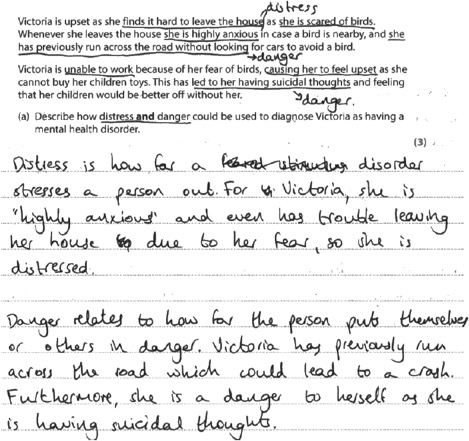 distress
Victoria is upset as she finds it hard to leave the house as she is scared of birds.
Whenever she leaves the house she is highly anxious in case a bird is nearby, and she
has previously run across the road without looking for cars to avoid a bird.
→danger
Victoria is unable to work because of her fear of birds, causing her to feel upset as she
cannot buy her children toys. This has led to her having suicidal thoughts and feeling
that her children would be better off without her.
→danger.
(a) Describe how distress and danger could be used to diagnose Victoria as having a
mental health disorder.
(3)
Distress is how far a disorder
stresses a person out. For Victoria, she is
"highly anxious" and even has trouble leaving
her house due to her fear, so she is
distressed.
Danger relates to how far the person puts themselves
or others in danger. Victoria has previously run
across the road which could lead to a crash.
Furthermore, she is a danger to herself as she
is having suicidal thoughts.